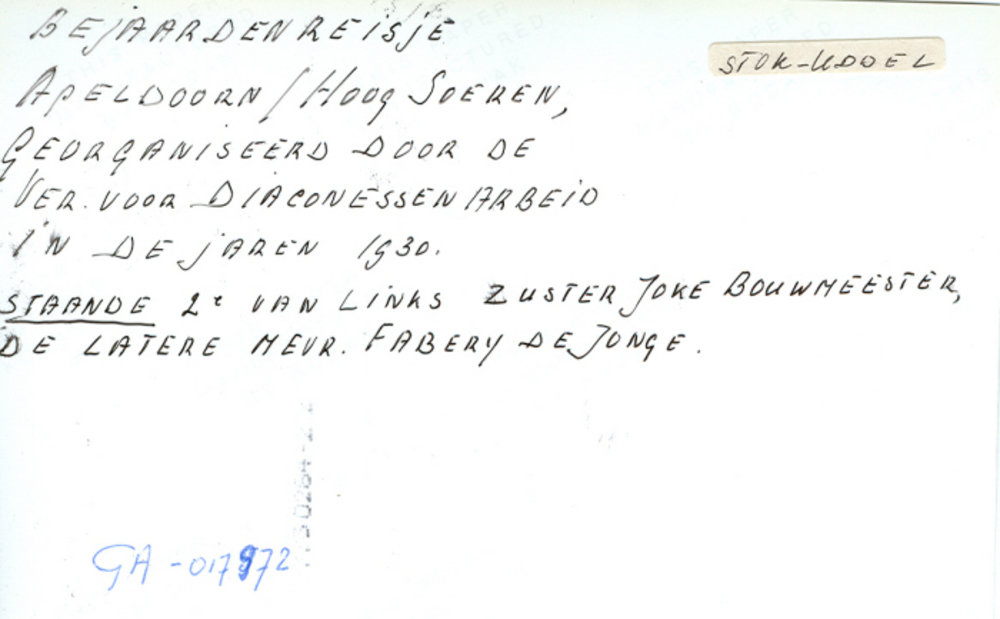 BEjAARDENREISjE
STOK-KDOEL
APELDOORN / HOOG SOEREN,
GEORGANISEERD DOOR DE
VER. VOOR DIACONESSENARBEID
IN DE jAREN 1930.
STAANDE 2e VAN LINKS ZUSTER JOKE BOUWMEESTER,
DE LATERE MEVR. FABERY DE JONGE.
GA-017972